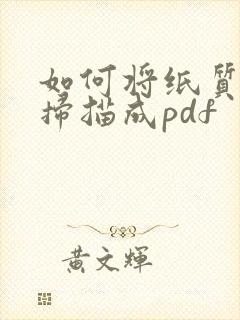 如何将纸质
扫描成pdf
黄文辉